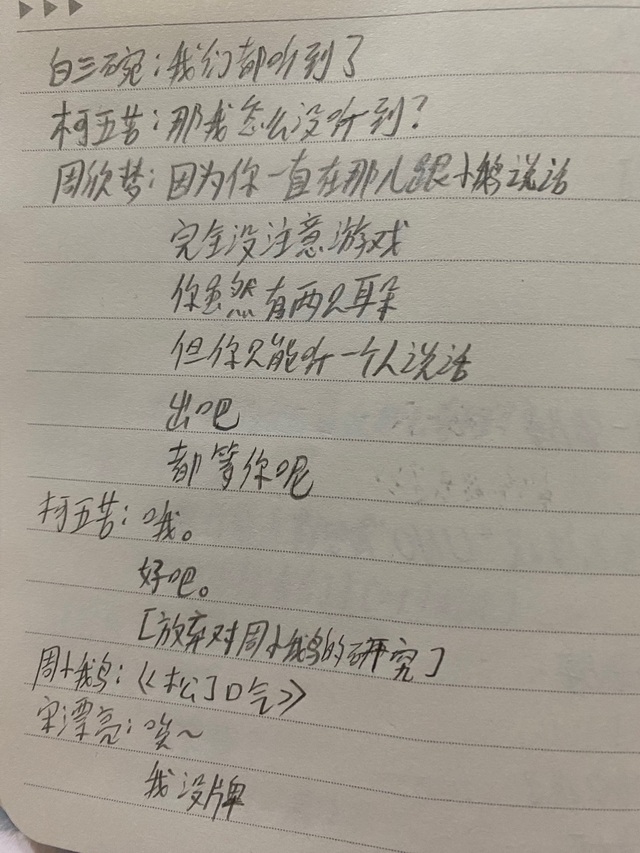 白三碗：我们都听到了
柯五苦：那我怎么没听到？
周欣梦：因为你一直在那儿跟小鹅说话
完全没注意游戏
你虽然有两只耳朵
但你只能听一个人说话
出吧
都等你呢
柯五苦：哦。
好吧。
[放弃对周小鹅的研究]
周小鹅：《《松了口气》》
宋漂亮：唉~
我没牌